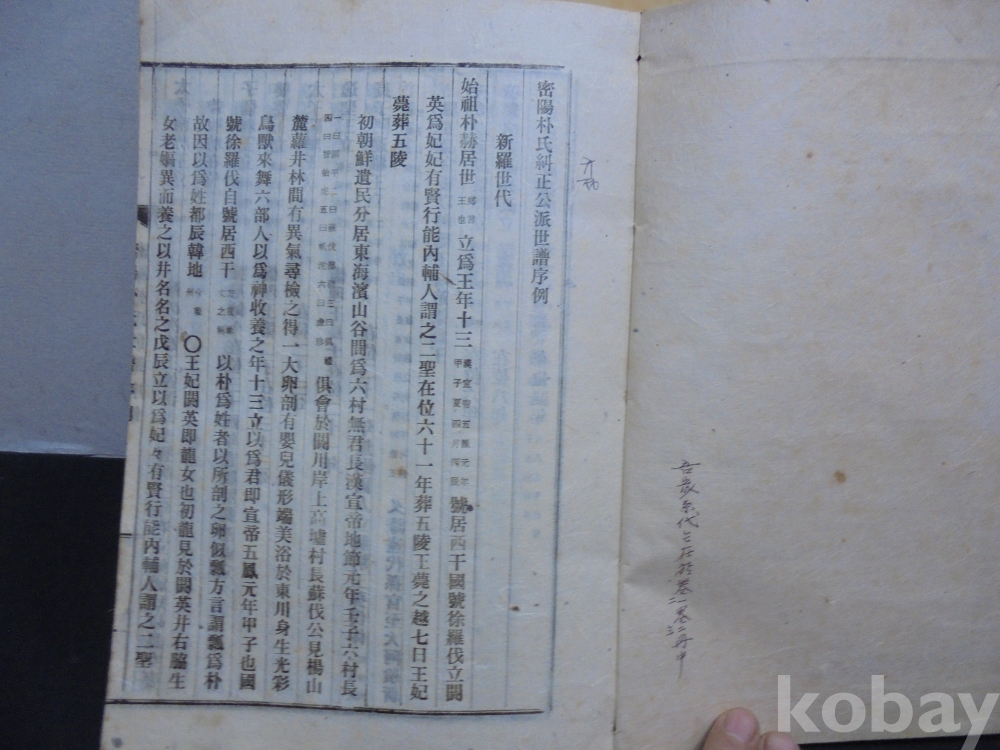 密陽朴氏糾正公派世譜序例
新羅世代
始祖朴赫居世 立爲王年十三 漢宣帝五鳳元年甲子夏四月丙辰 號居西干國號徐羅伐立閼
英爲妃妃有賢行能內輔人謂之二聖在位六十一年葬五陵王薨之越七日王妃
薨葬五陵
初朝鮮遺民分居東海濱山谷間爲六村無君長漢宣帝地節元年壬子六村長
俱會於閼川岸上高墟村長蘇伐公見楊山
麓蘿井林間有異氣尋檢之得一大卵剖有嬰兒儀形端美浴於東川身生光彩
鳥獸來舞六部人以爲神收養之年十三立以爲君即宣帝五鳳元年甲子也國
號徐羅伐自號居西干 以朴爲姓者以所剖之卵似瓢方言謂瓢爲朴
故因以爲姓都辰韓地 〇王妃閼英即龍女也初龍見於閼英井右脇生
女老嫗異而養之以井名名之戊辰立以爲妃々有賢行能內輔人謂之二聖
kobay